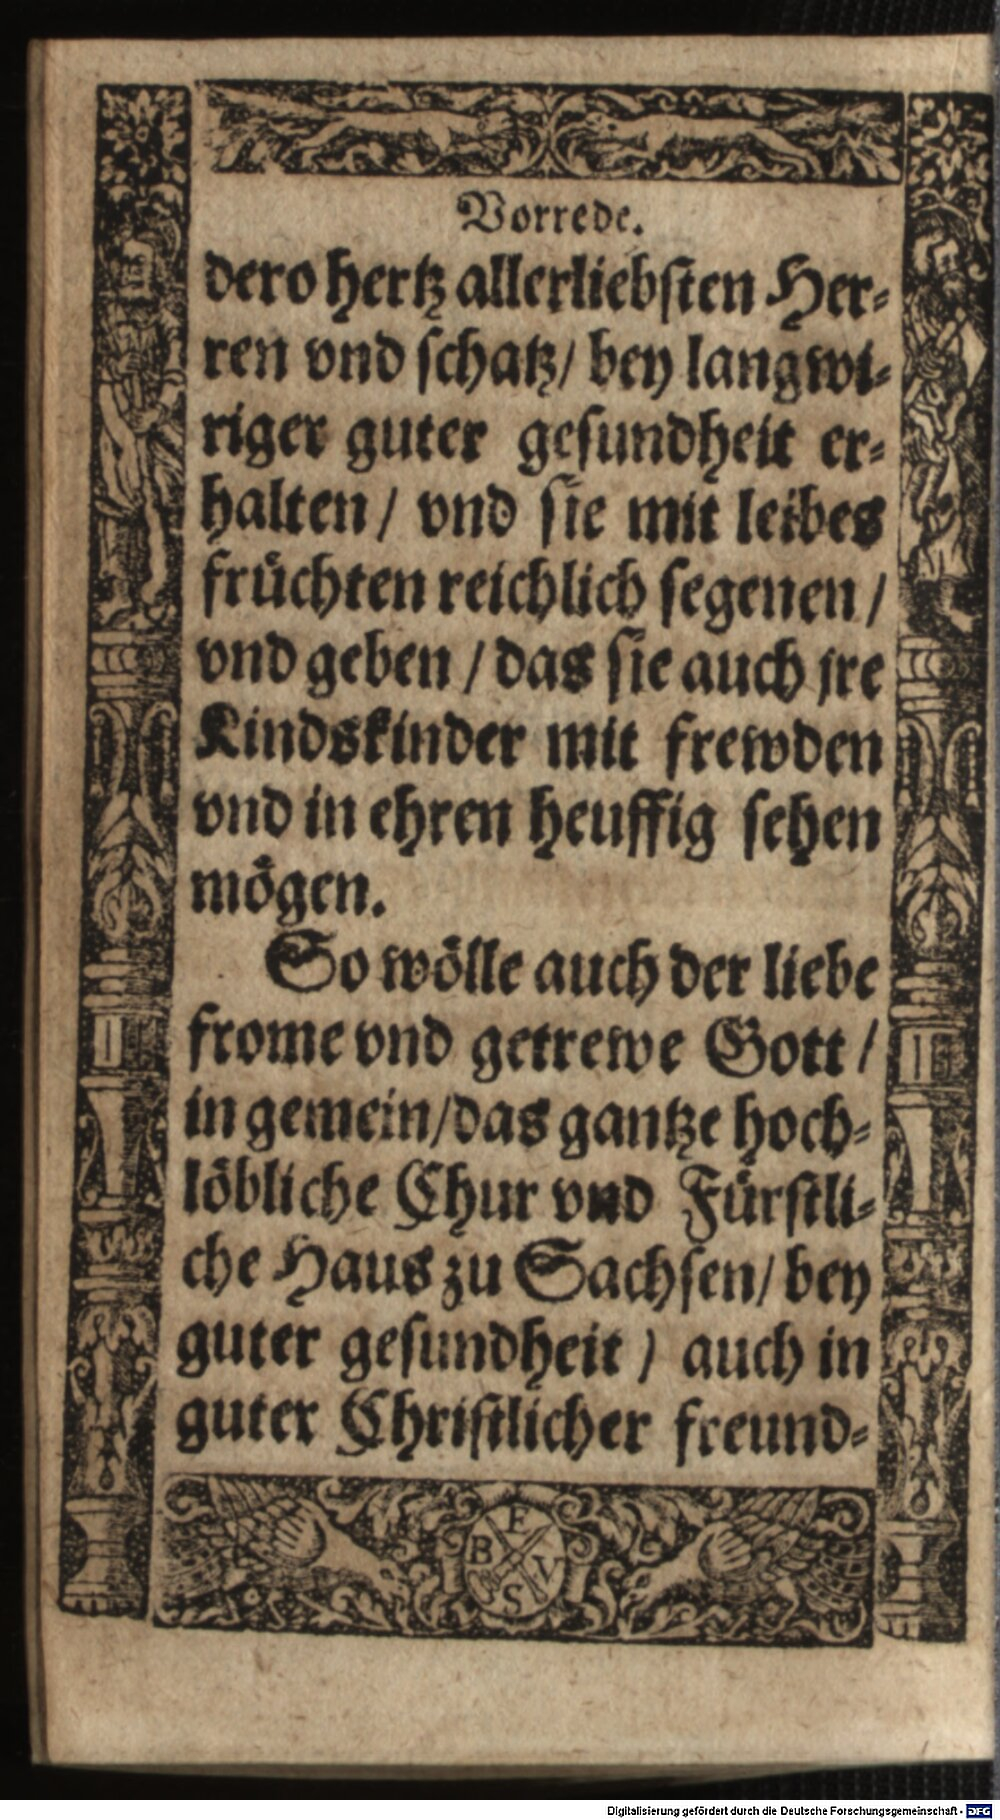 Vorrede.
dero hertz allerliebsten Her⸗
ren vnd schatz/ bey langwi⸗
riger guter gesundheit er⸗
halten/ vnd sie mit leibes
früchten reichlich segenen/
vnd geben/ das sie auch jre
Kindskinder mit frewden
vnd in ehren heuffig sehen
mögen.
So wölle auch der liebe
frome vnd getrewe Gott/
in gemein/das gantze hoch⸗
löbliche Chur vnd Fürstli⸗
che Haus zu Sachsen/ bey
guter gesundheit/ auch in
guter Christlicher freund⸗
F
B V
S
Digitalisierung gefördert durch die Deutsche Forschungsgemeinschaft - DFG